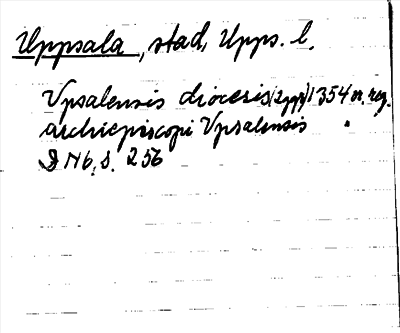 Uppsala, stad, Upps. l.
Vpsalensis diocesis (2 ggr) 1354 or. reg.
archiepiscopi Vpsalensis "
DN 6, s. 256